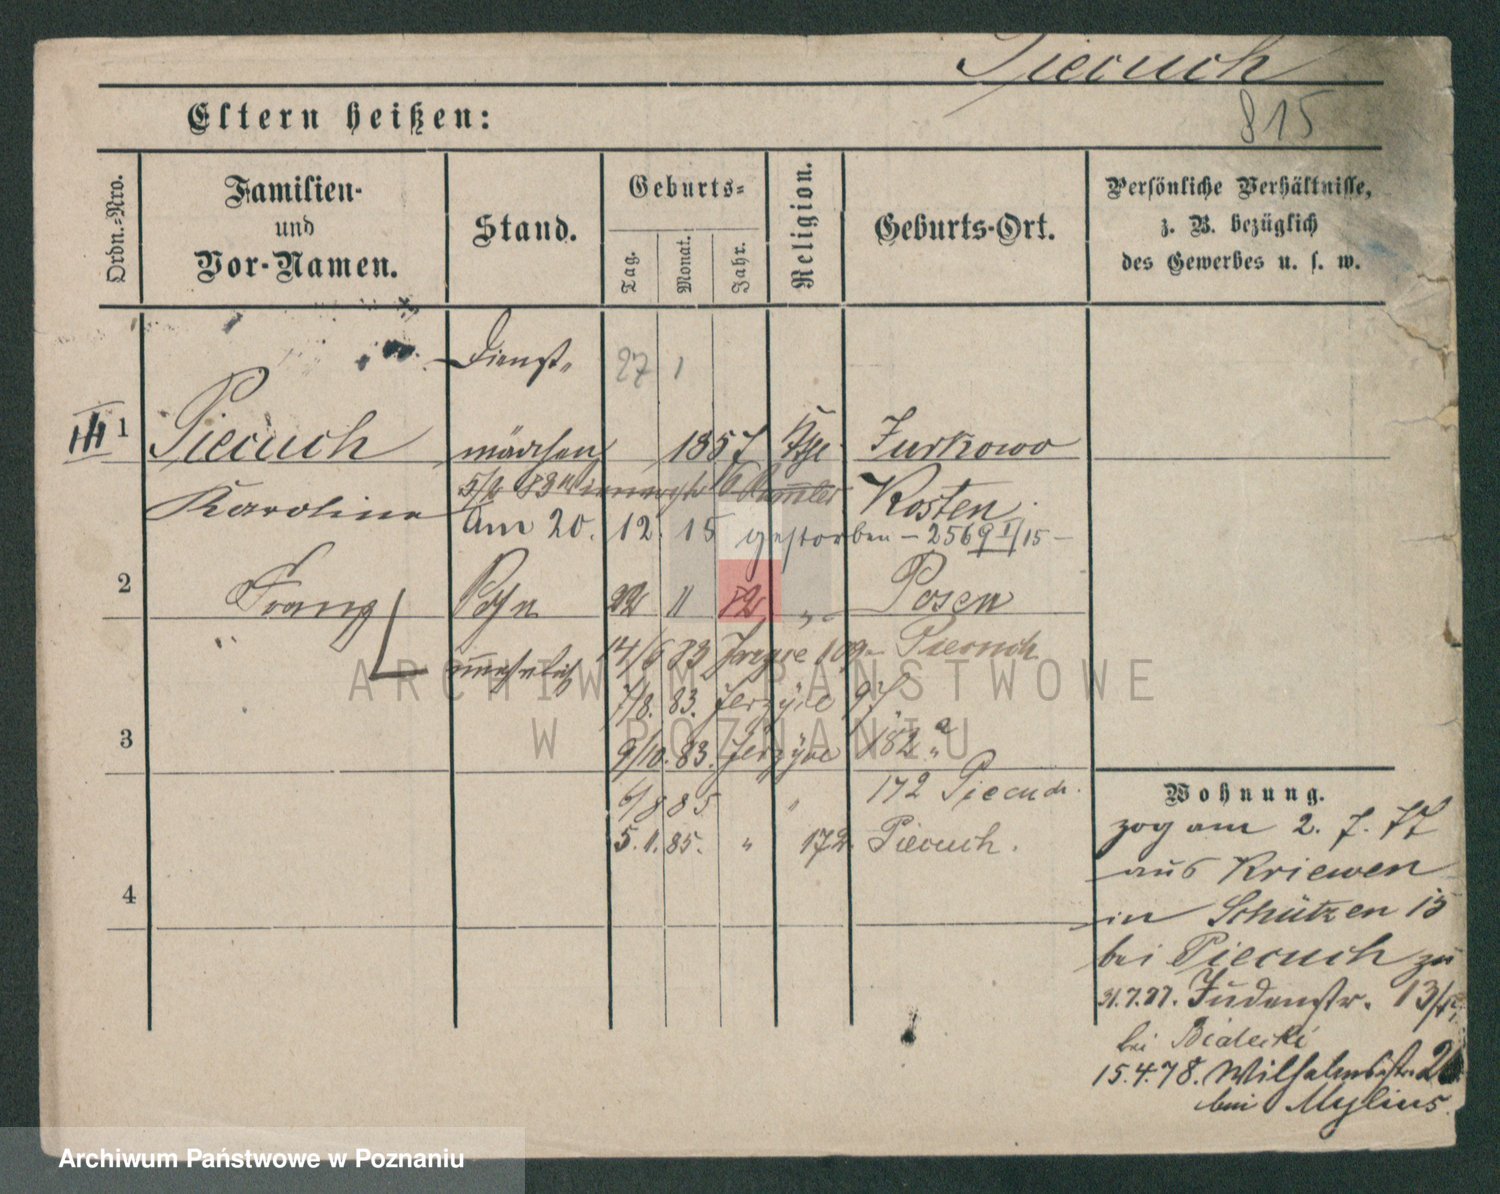 Piecuch
815
Eltern heißen:
Ordn.-Nro.
Familien-
und
Vor-Namen.
Stand.
Geburts-
Tag.
Monat.
Jahr.
Religion.
Geburts-Ort.
Persönliche Verhältnisse,
z. B. bezüglich
des Gewerbes u. s. w.
Dienst-
27 1
1 Piecuch mädchen 1857 Jurkowo
Karolina Kosten
Am 20. 12. 15 gestorben – 2569 I/15 –
2 Franz Sohn 22 11 82 " Posen
unehelich
14/6 83 109 Piecuch
7/8. 83. Jerzyce 97
3 9/10. 83. Jerzyce 182a
6/8 85 " 172 Piecuch.
5. 1. 85. " 172 Piecuch.
4
Wohnung.
zog am 2. 7. 77
aus Kriewen
in Schützen 15
bei Piecuch zu
31.7.77. Judenstr. 13/
bei Bialecki
15.4.78. Wilhelmstr. 26
bei Mylius.
ARCHIWUM PAŃSTWOWE
W POZNANIU
Archiwum Państwowe w Poznaniu